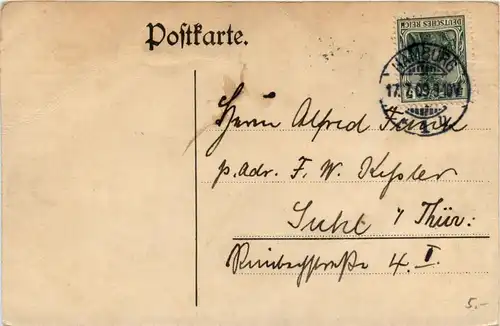 Postkarte.
DEUTSCHES REICH
HAMBURG
17.7.09.
Herrn Alfred
p. Adr. F. W. Keßler
Suhl / Thür:
Rimbachstraße 4. I.
5.-